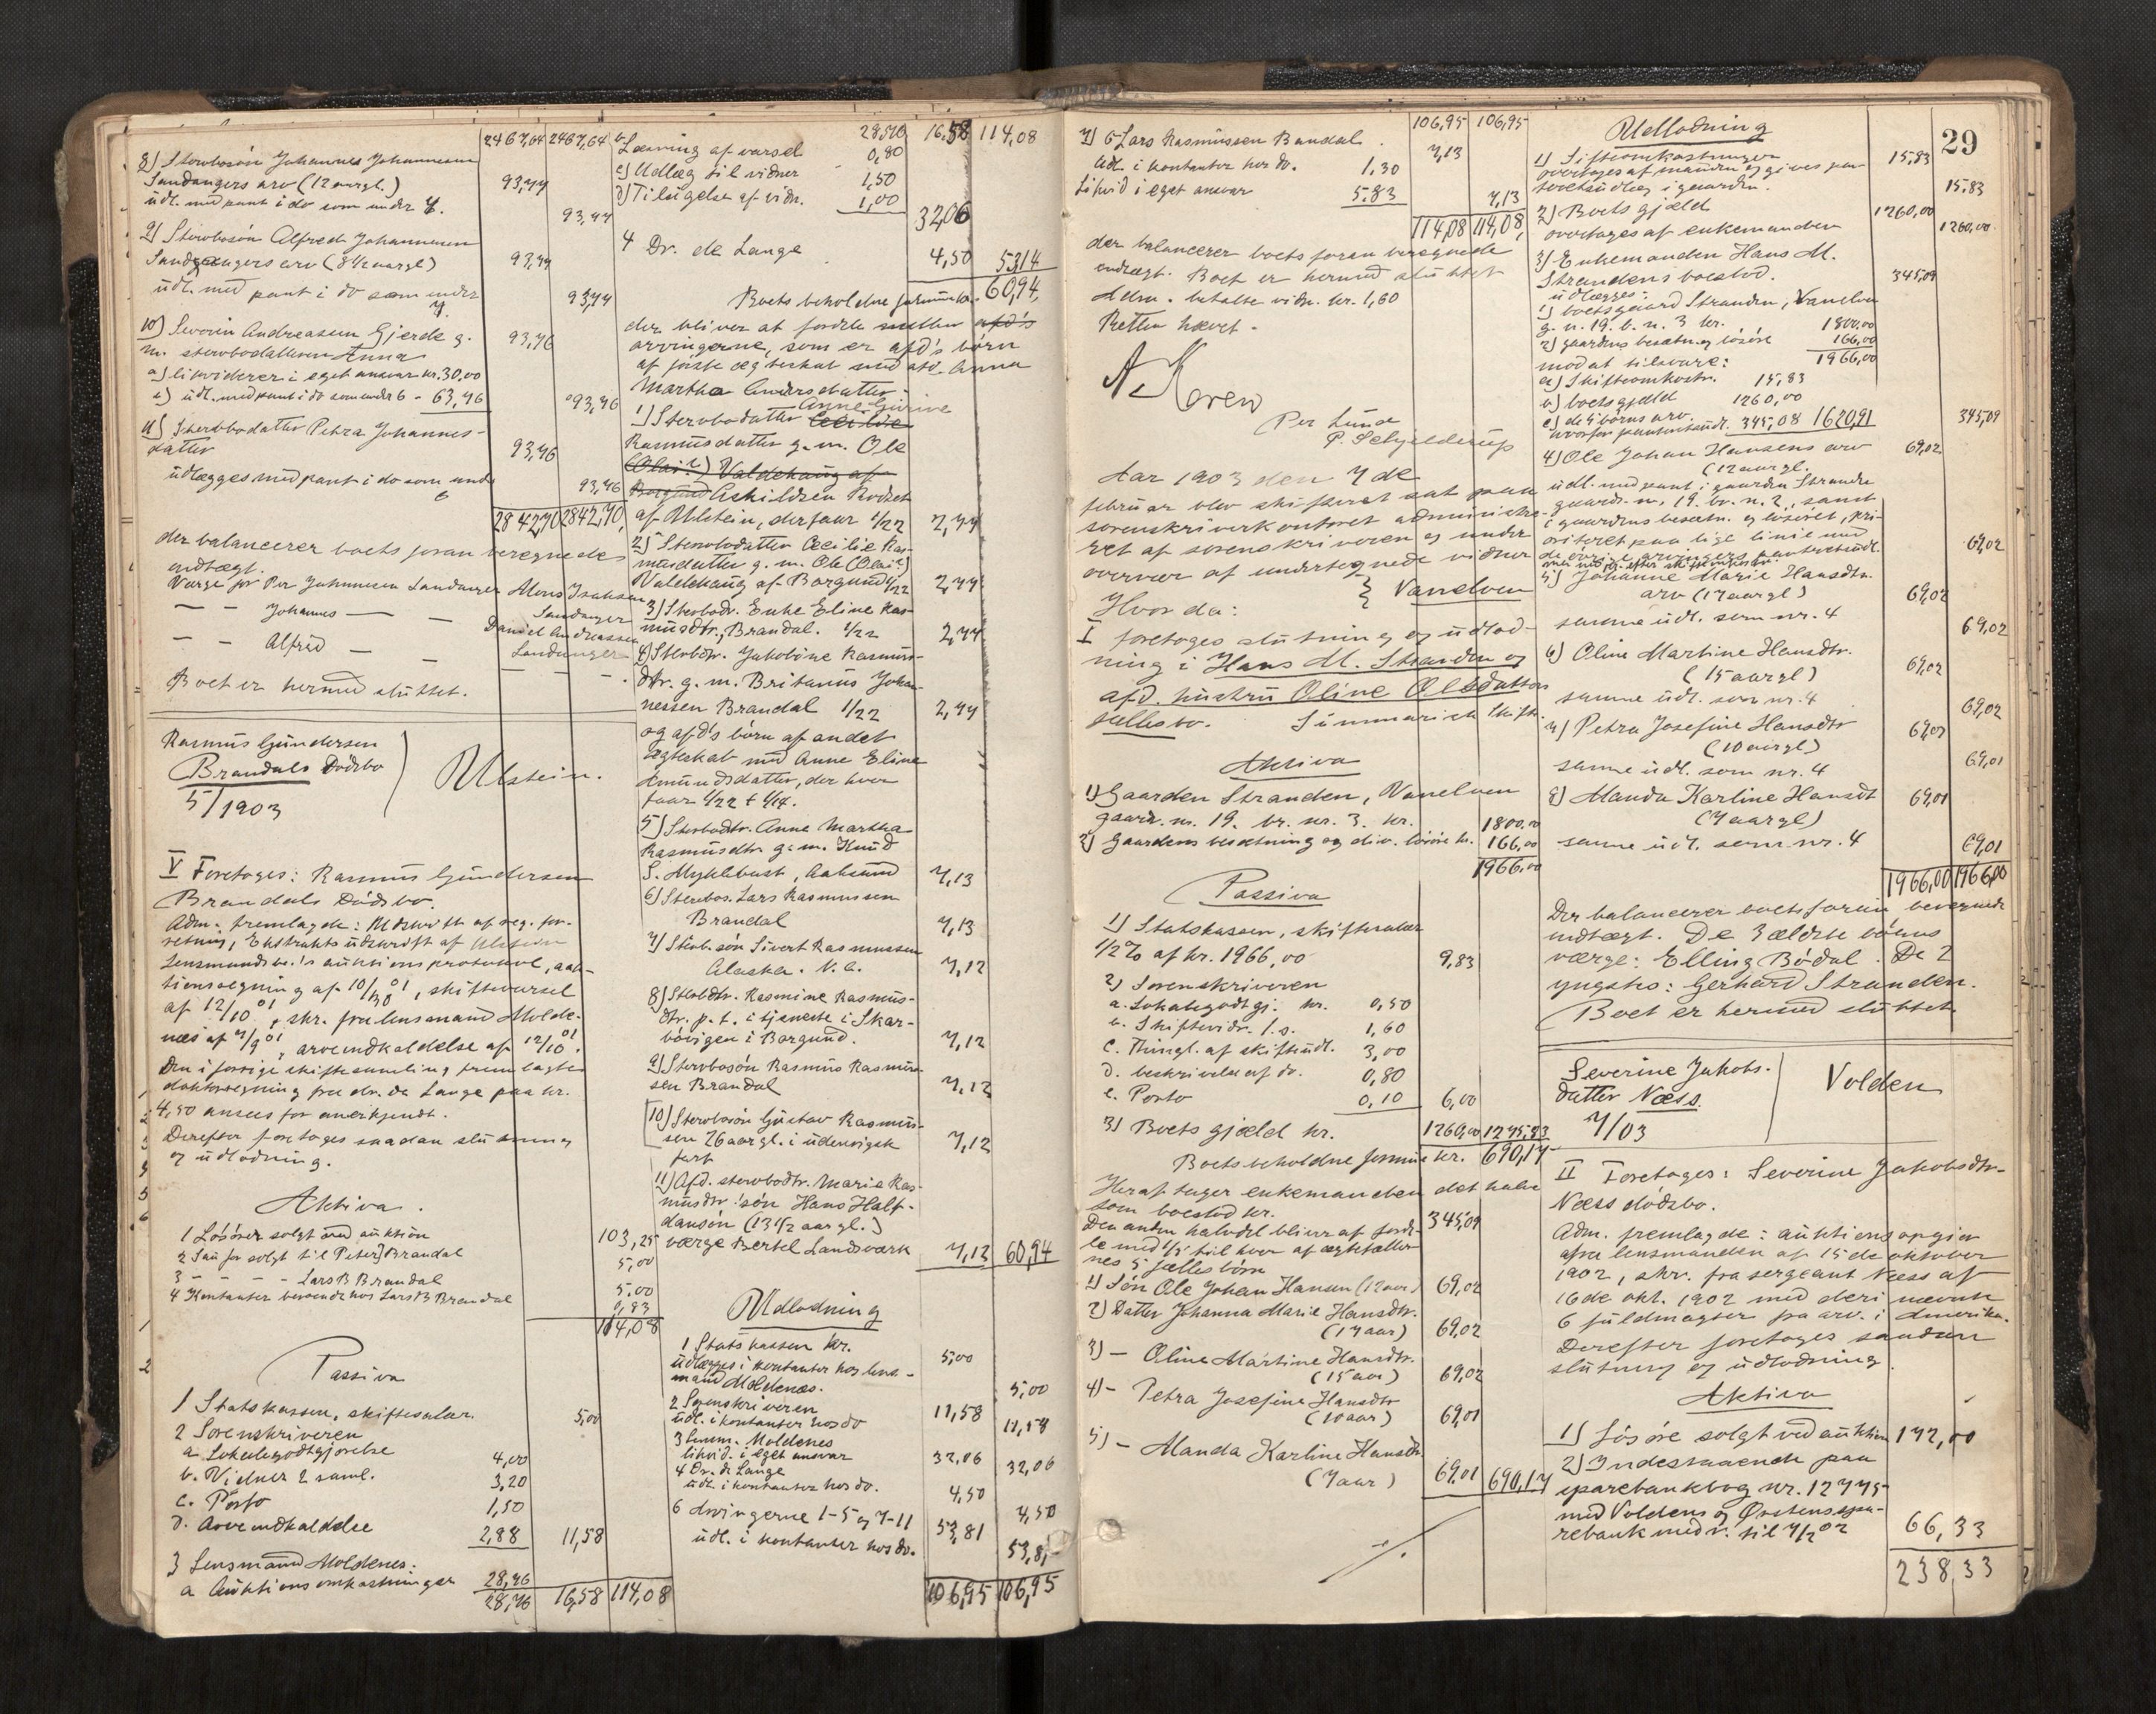 2467,64 2467,64
8) Stervbosøn Johannes Johannesen
Sandangers arv (12 aar gl.) 93,47
udl. med pant i do som under 7. 93,47
9) Stervbosøn Alfred Johannesen
Sandangers arv (8 1/2 aar gl) 93,47
udl. med pant i do som under 7. 93,47
10) Severin Andreasen Gjerde g.
m. stervbodatteren Anna 93,46
a) likviderer i eget ansvar kr. 30,00
b) udl. med pant i do som under 6 - 63,46 93,46
11) Stervbodatter Petra Johannes-
datter 93,46
udlægges med pant i do som under 6 93,46
2842,70 2842,70
der balancerer boets foran beregnede
indtægt.
Værge for Per Johannesen Sandanger Mons Isaksen Sandanger
— — Johannes — — Daniel Andreassen Sandanger
— — Alfred — — — — -
Boet er hermed sluttet.
Rasmus Gundersen
Brandals Dødsbo
5/1903
Ulstein.
V Foretages: Rasmus Gundersen
Brandals Dødsbo.
Adm. fremlagde: Udskrift af reg. for-
retning, Ekstrakts udskrift af Ulstein
Lensmandsbe.'s auktionsprotokol, auk-
tionsregning af 10/10 01, skiftevarsel
af 12/10 01, skr. fra lensmand Molde-
næs af 7/9 01, arveindkaldelse af 12/10 01.
Den i forrige skiftesamling fremlagte
doktorregning fra dr. de Lange paa kr.
4,50 ansees for anerkjendt.
Derefter foretages saadan slutning
og udlodning.
Aktiva.
1 Løsøre solgt ved auktion 103,25
2 Sau for solgt til Peter J Brandal 5,00
3 - - - - Lars B Brandal 5,00
4 Kontanter beroende hos Lars B Brandal 0,83
114,08
Passiva
1. Statskassen, skiftesalær. 5,00
2 Sorenskriveren
a Lokalegodtgjørelse 4,00
b. Vidner 2 saml. 3,20
c. Porto 1,50
d. Arveindkaldelse 2,88 11,58
3 Lensmand Moldenes:
a Auktionsomkostninger 28,76
28,76 16,58 114,08
28,76 16,58 114,08
b Læsning af varsel 0,80
c) Udlæg til vidner 1,50
d) Tilsigelse af vidn. 1,00 32,06
4 Dr. de Lange 4,50 53,14
Boets beholdne formue kr. 60,94
der bliver at fordele mellem afd's
arvingerne, som er afd's børn
af første ægteskab med afd. Anna
Martha Andersdatter
1) Stervbodatter Cecilie Anne Gurine
Rasmusdatter g. m. Ole
(Olai?) Valdehaug af
Borgund Eskildsen Rodset
af Ulstein, der faar 1/22 2,77
2) Stervbodatter Cecilie Ras-
musdatter g. m. Ole (Olai?)
Valdehaug af Borgund 1/22 2,77
3) Stervbodr. Enke Eline Ras-
musdtr., Brandal. 1/22 2,77
4) Stervbdtr. Jakobine Rasmus-
dtr. g. m. Britanus Johan-
nessen Brandal 1/22 2,77
og afd's børn af andet
ægteskab med Anne Eline
Amundsdatter, der hver
faar 1/22 + 1/14.
5) Stervbodtr. Anne Martha
Rasmusdtr g. m. Knud
S. Myklebust, Aalesund 7,13
6) Stervbos. Lars Rasmussen
Brandal 7,13
7) Stervb. søn Sivert Rasmussen
Alaska. N. A. 7,12
8) Stervbdtr. Rasmine Rasmus-
dtr. p. t. i tjeneste i Skar-
bøvigen i Borgund. 7,12
9) Stervbosøn Rasmus Rasmus-
sen Brandal 7,12
10) Stervbosøn Gustav Rasmus-
sen 26 aar gl. i udenrigsk
fart 7,12
11) Afd. stervbodtr. Marie Ras-
musdtr. søn Hans Half-
dansøn (13 1/2 aar gl.)
værge Bertel Landsværk 7,12 60,94
Udlodning
1 Statskassen kr. 5,00
udlægges i kontanter hos lens-
mand Moldenæs. 5,00
2 Sorenskriveren 11,58
udl. i kontanter hos do 11,58
3 Lensm. Moldenes
likvid. i eget ansvar 32,06 32,06
4 Dr. de Lange
udl. i kontanter hos do. 4,50 4,50
6 Arvingerne 1-5 og 7-11 53,81
udl. i kontanter hos do. 53,81
106,95 106,95
29
106,95 106,95
7) 6 Lars Rasmussen Brandal 7,13
Udl. i kontanter hos do. 1,30
Likvid i eget ansvar 5,83 7,13
114,08 114,08
der balancerer boets foran beregnede
indtægt. Boet er hermed sluttet
Adm. betalte vidn. kr. 1,60
Retten hævet.
A. Koren
Per Lunde
P. Schjelderup
Aar 1903 den 7de
februar blev skifteret sat paa
sorenskriverkontoret administre-
ret af sorenskriveren og under
overvær af undertegnede vidner
Hvor da: Vanelven
I foretages slutning og udlod-
ning i Hans M. Stranden og
afd. hustru Oline Olsdatters
fællesbo. Summarisk Skifte
Aktiva
1) Gaarden Stranden, Vanelven
gaards. n. 19. br. nr. 3. kr. 1800,00
2) Gaardens besætning og div. løsøre kr. 166,00
1966,00
Passiva
1) Statskassen, skiftesalær
1/2 % af kr. 1966,00 9,83
2) Sorenskriveren
a. Lokalegodtgj. kr. 0,50
b. Skiftevidn. 1. s. 1,60
c. Thingl. af skifteudl. 3,00
d. beskrivelse af do. 0,80
e. Porto 0,10 6,00
3) Boets gjæld kr. 1260,00 1275,83
Boets beholdne formue kr. 690,17
Heraf tager enkemanden det halve
som boeslod kr. 345,09
Den anden halvdel bliver at forde-
le med 1/5 til hver af ægtefæller-
nes 5 fælles børn
1) Søn Ole Johan Hansen (12 aar) 69,02
2) Datter Johanna Marie Hansdtr.
(17 aar) 69,02
3) — Oline Martine Hansdtr.
(15 aar) 69,02
4) - Petra Josefine Hansdtr
(10 aar) 69,01
5) — Manda Karline Hansdtr.
(7 aar) 69,01 690,17
./.
Udlodning
1) Skifteomkostninger 15,83
overtages af manden og gives pan
teretsudlæg i gaarden. 15,83
2) Boets gjæld 1260,00
overtages af enkemanden 1260,00
3) Enkemanden Hans M.
Strandens boeslod. 345,09
udlægges:
1) boets gaard Stranden, Vanelven
g. n. 19. b. n. 3 kr. 1800,00
2) gaardens besætn. og løsøre 166,00
mod at tilsvare: 1966,00
a) Skifteomkostn. 15,83
b) boets gjæld 1260,00
c) de 5 børns arv.
hvorfor panteretsudl. 345,08 1620,91 345,09
4) Ole Johan Hansens arv 69,02
(12 aar gl.
udl. med pant i gaarden Stranden
gaards n. 19. br. n. 2, samt
i gaardens besætn. og løsøret, pri-
oriteret paa lige linie med
de øvrige arvingers panteretsudl. 69,02
5) Johanne Marie Hansdtr.
arv (17 aar gl) 69,02
samme udl. som nr. 4 69,02
6) Oline Martine Hansdtr.
(15 aar gl) 69,02
samme udl. som nr. 4 69,02
7) Petra Josefine Hansdtr 69,01
(10 aar gl)
samme udl. som nr. 4 69,01
8) Manda Karline Hansdt 69,01
(7 aar gl)
samme udl. som nr. 4 69,01
1966,00 1966,00
Der balancerer boets foran beregnede
indtægt. De 3 ældste børns
værge: Elling Bødal. De 2
yngstes: Gerhard Stranden.
Boet er hermed sluttet
Severine Jakobs-
datter Næss.
7/03
Volden
II Foretages: Severine Jakobsdtr-
Næss dødsbo.
Adm. fremlagde: auktionsopgjør
fra lensmanden af 15de oktober
1902, skr. fra sergeant Næss af
16de okt. 1902 med deri nævnte
6 fuldmagter fra arv. i Amerika.
Derefter foretages saadan
slutning og udlodning.
Aktiva
1) Løsøre solgt ved auktion 172,00
2) Indestaaende paa
sparebankbog nr. 12775
med Voldens og Ørstens spa-
rebank med r. til 7/2 02 66,33
238,33